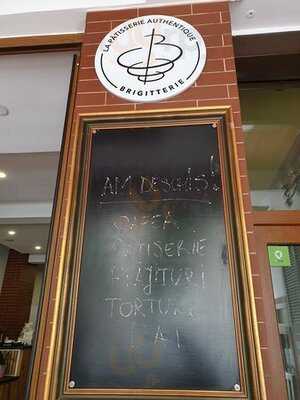 LA PÂTISSERIE AUTHENTIQUE
BRIGITTERIE
AM DESCHIS!
CAFEA
PATISERIE
PRAJITURI
TORTURI